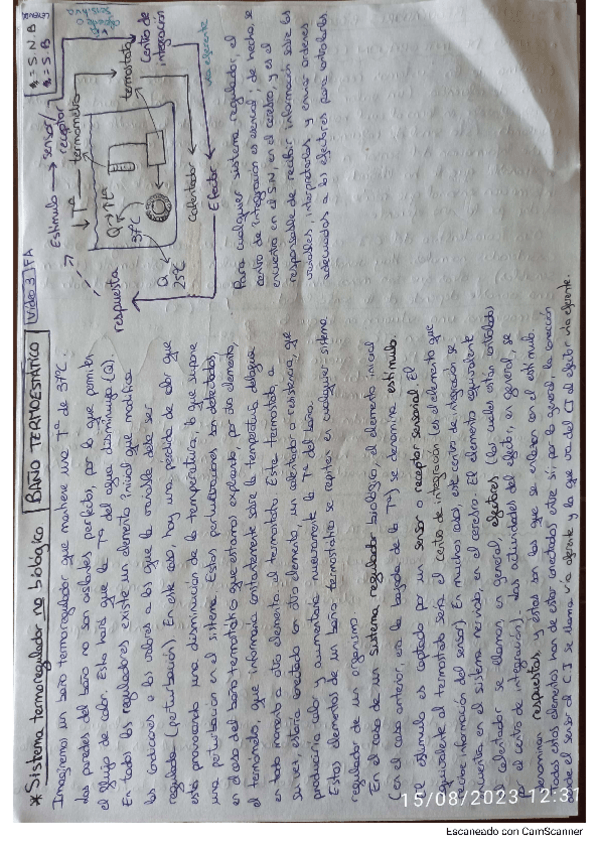 * Sistema termoregulador no biológico | BAÑO TERMOESTÁTICO | Vídeo 3 | FA
Imaginemos un baño termoregulador que mantiene una Tª de 37ºC.
Las paredes del baño no son aislantes perfectos, por lo que permiten
el flujo de calor. Esto hará que la Tª del agua disminuya (Q).
En todos los reguladores existe un elemento inicial que modifica
las condiciones o los valores a los que la variable debe ser
regulada (perturbación). En este caso, hay una pérdida de calor que
está provocando una disminución de la temperatura, lo que supone
una perturbación en el sistema. Estas perturbaciones son detectadas,
en el caso del baño termostático que estamos explicando por otro elemento,
el termómetro, que informaría constantemente sobre la temperatura del agua
en todo momento a otro elemento, el termostato. Este termostato, a
su vez, estaría conectado con otro elemento, un calentador o resistencia, que
produciría calor y aumentaría nuevamente la Tª del baño.
Estos elementos de un baño termostático se repiten en cualquier sistema
regulador de un organismo.
En el caso de un sistema regulador biológico, el elemento inicial
(en el caso anterior, era la bajada de la Tª) se denomina estímulo.
El estímulo es captado por un sensor o receptor sensorial. El
equivalente al termostato sería el centro de integración (es el elemento que
recibe información del sensor). En muchos casos, este centro de integración se
encuentra en el sistema nervioso, en el cerebro. El elemento equivalente
al calentador se llaman, en general, efectores (los cuales están controlados
por el centro de integración). Las actividades del efector, en general, se
denominan respuestas, y éstas son las que se enlazan con el estímulo.
Todos estos elementos han de estar conectados entre sí; por lo general la conexión
desde el sensor al C.I se llama vía aferente y la que va del CI al efector vía eferente.
Estímulo → sensor/
receptor
↓Tª → termómetro
vía
LEYENDA
= S.N.B
= S.B
termostato
Centro de
integración
Q→↑Tª
37ºC
Q
25ºC
calentador
Efector
vía eferente
respuesta
Para cualquier sistema regulador, el
centro de integración es esencial; de hecho, se
encuentra en el S.N, en el cerebro, y es el
responsable de recibir información sobre las
variables, interpretarlas y enviar órdenes
adecuadas a los efectores para controlarlas.
15/08/2023 12:31
Escaneado con CamScanner